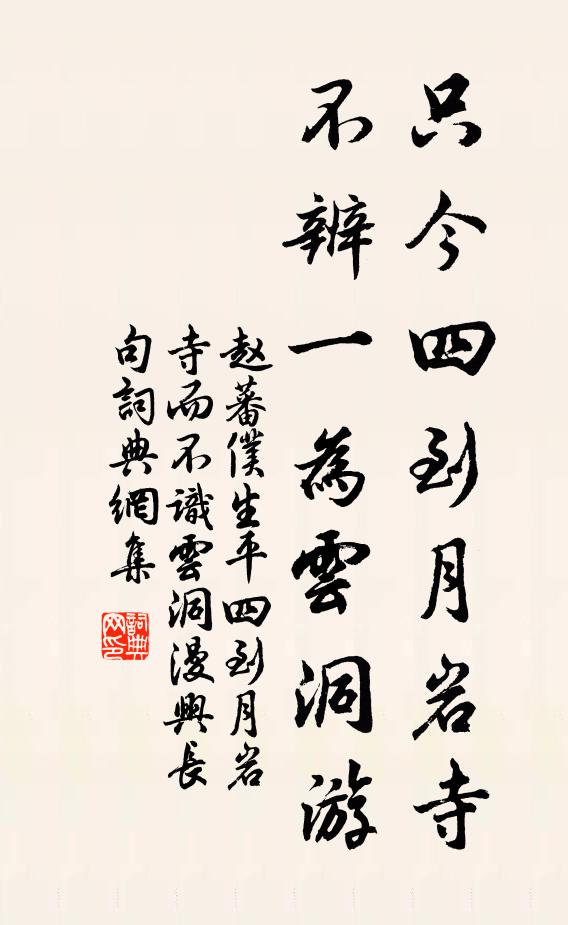 只今四到月岩寺
不辨一為雲洞游
赵蕃僕生平四到月岩
寺而不識雲洞漫興長
句詞典網集
詞典
网印